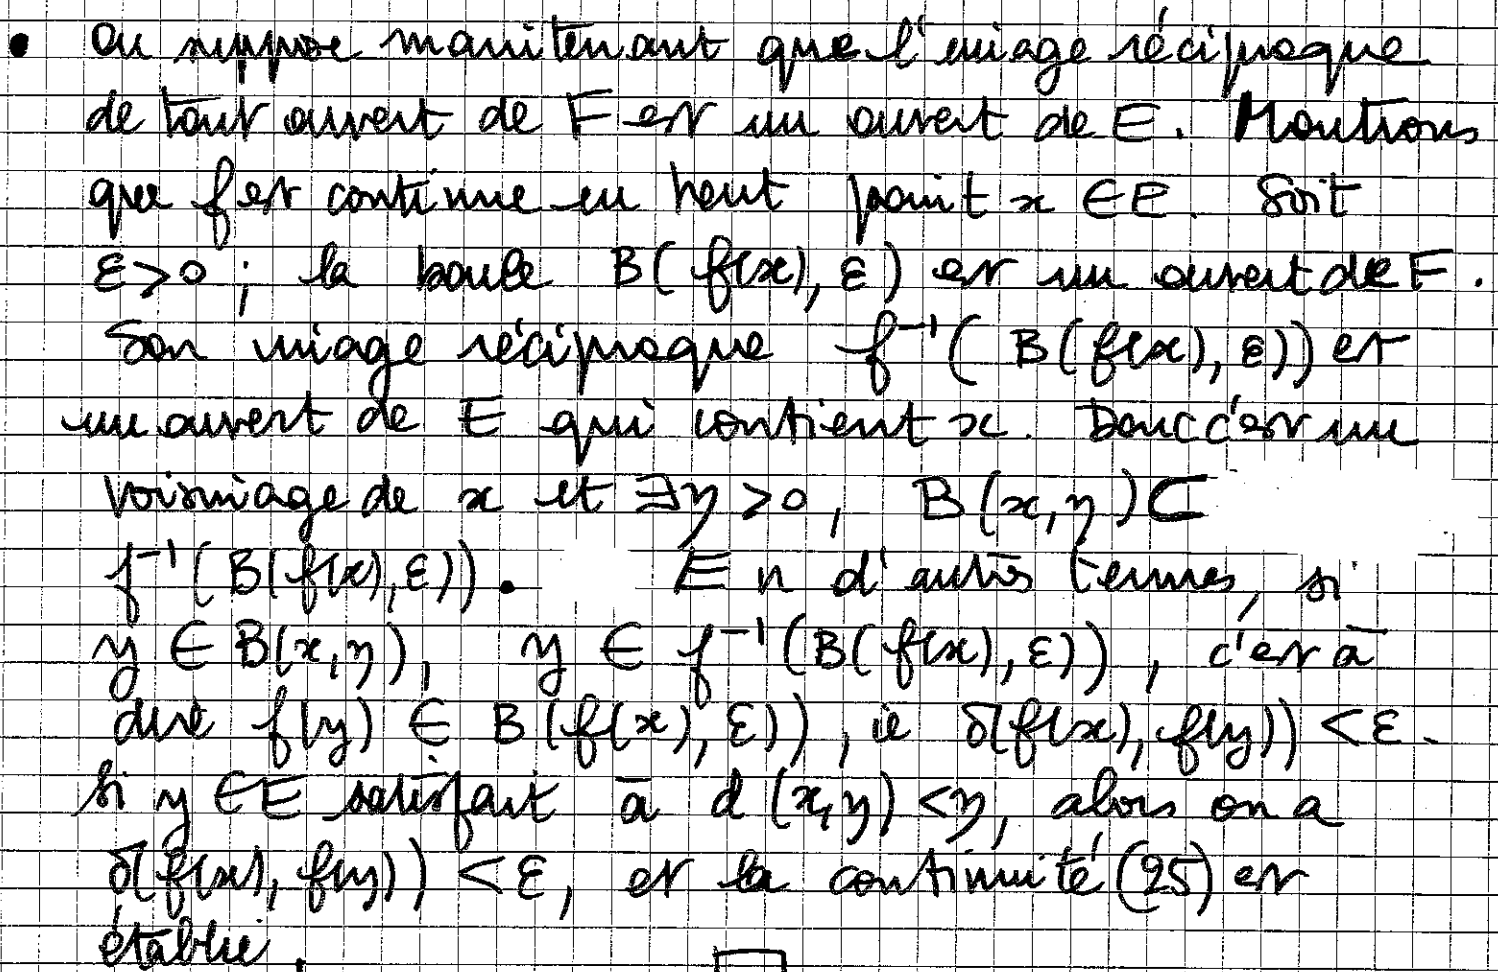 • On suppose maintenant que l'image réciproque
de tout ouvert de F est un ouvert de E. Montrons
que f est continue en tout point x ∈ E. Soit
ε > 0 ; la boule B(f(x), ε) est un ouvert de F.
Son image réciproque f⁻¹(B(f(x), ε)) est
un ouvert de E qui contient x. Donc c'est un
voisinage de x et ∃η > 0, B(x, η) ⊂
f⁻¹(B(f(x), ε)). En d'autres termes, si
y ∈ B(x, η), y ∈ f⁻¹(B(f(x), ε)), c'est à
dire f(y) ∈ B(f(x), ε)), ie δ(f(x), f(y)) < ε.
Si y ∈ E satisfait à d(x, y) < η, alors on a
δ(f(x), f(y)) < ε, et la continuité (25) est
établie. □